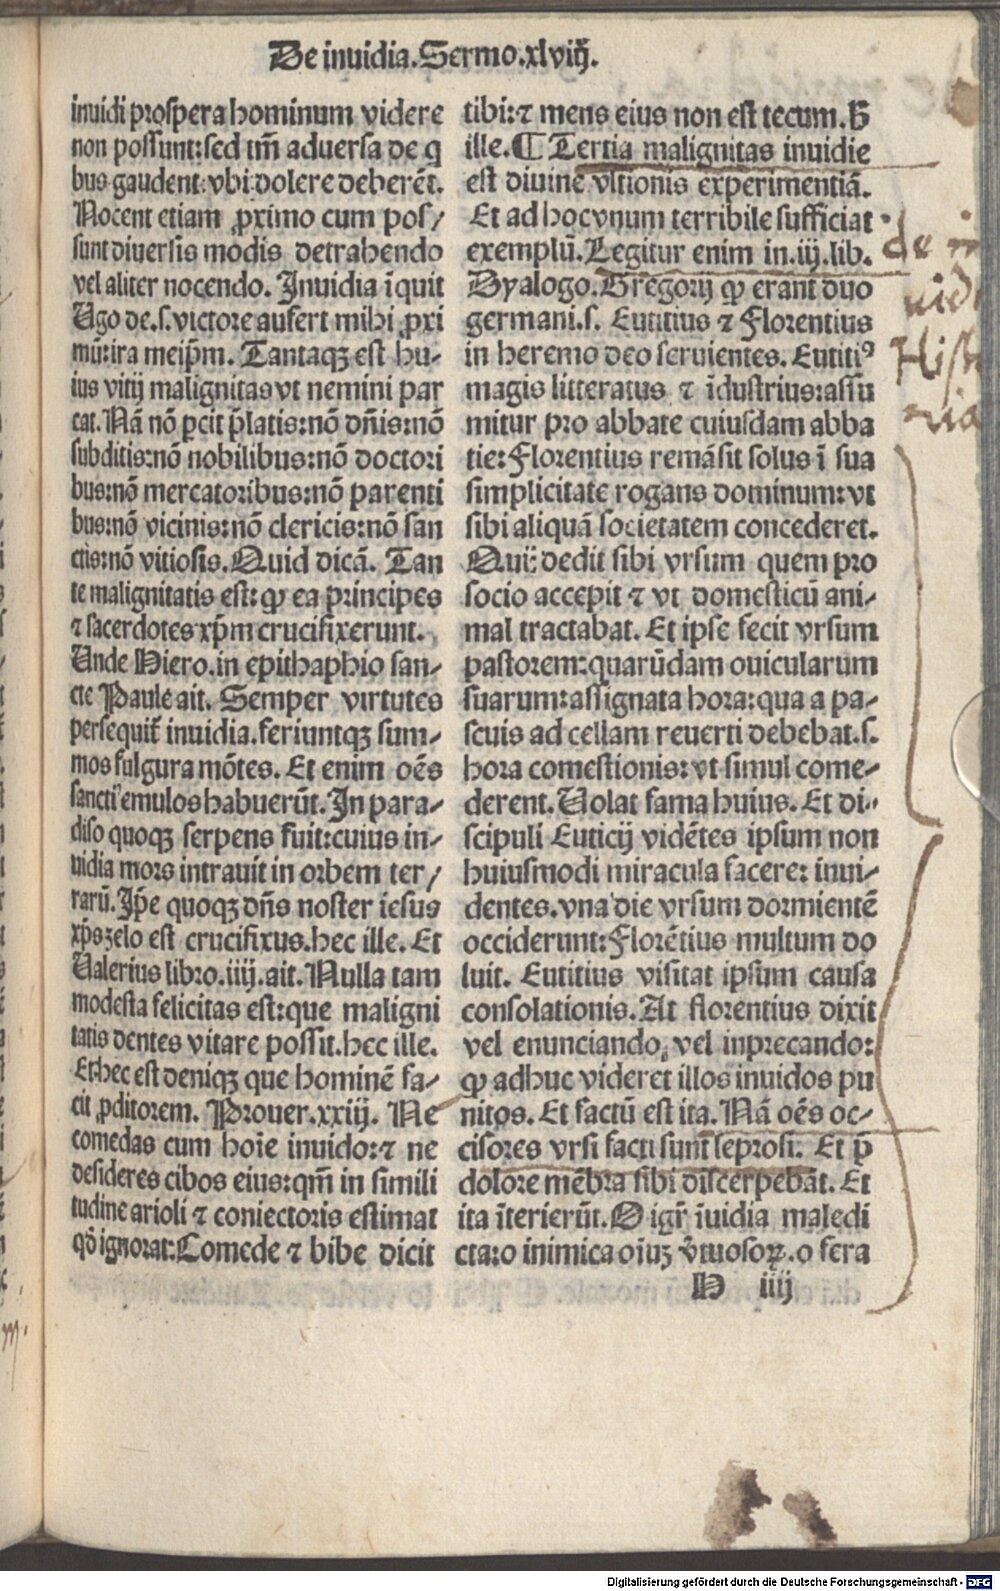 De inuidia. Sermo. xlviij.
inuidi prospera hominum videre
non possunt: sed tm̄ aduersa de q̄
bus gaudent: vbi dolere deberēt.
Nocent etiam ꝓximo cum pos/
sunt diuersis modis detrahendo
vel aliter nocendo. Inuidia īquit
Ugo de.s.victore aufert mihi ꝓxi
mū: ira meip̄m. Tantaqꝫ est hu-
ius vitij malignitas vt nemini par
cat. Nā nō ꝑcit p̄latis: nō dn̄is: nō
subditis: nō nobilibus: nō doctori
bus: nō mercatoribus: nō parenti
bus: nō vicinis: nō clericis: nō san
ctis: nō vitiosis. Quid dicā. Tan
te malignitatis est: ꝙ ea principes
⁊ sacerdotes xp̄m crucifixerunt.
Unde Hiero. in epithaphio san-
cte Paule ait. Semper virtutes
persequit̄ inuidia. feriuntqꝫ sum-
mos fulgura mōtes. Et enim oēs
sancti emulos habuerūt. In para-
diso quoqꝫ serpens fuit: cuius in-
uidia mors intrauit in orbem ter/
rarū. Ip̄e quoqꝫ dn̄s noster iesus
xp̄s zelo est crucifixus. hec ille. Et
Ualerius libro. iiij. ait. Nulla tam
modesta felicitas est: que maligni
tatis dentes vitare possit. hec ille.
Et hec est deniqꝫ que hominē fa-
cit ꝓditorem. Prouer. xxiij. Ne
comedas cum hoīe inuido: ⁊ ne
desideres cibos eius: qm̄ in simili
tudine arioli ⁊ coniectoris estimat
qđ ignorat: Comede ⁊ bibe dicit
tibi: ⁊ mens eius non est tecum. H̄
ille. ¶ Tertia malignitas inuidie
est diuine vltionis experimentiā.
Et ad hoc vnum terribile sufficiat
exemplū. Legitur enim in. iij. lib.
Dyalogo. Gregorij ꝙ erant duo
germani. s. Eutitius ⁊ Florentius
in heremo deo seruientes. Eutitiꝰ
magis litteratus ⁊ īdustrius: assu
mitur pro abbate cuiusdam abba
tie: Florentius remāsit solus ī sua
simplicitate rogans dominum: vt
sibi aliquā societatem concederet.
Qui: dedit sibi vrsum quem pro
socio accepit ⁊ vt domesticū ani-
mal tractabat. Et ipse fecit vrsum
pastorem: quarūdam ouicularum
suarum: assignata hora: qua a pa-
scuis ad cellam reuerti debebat. s.
hora comestionis: vt simul come-
derent. Uolat fama huius. Et di-
scipuli Euticij vidētes ipsum non
huiusmodi miracula facere: inui-
dentes. vna die vrsum dormientē
occiderunt: Florētius multum do
luit. Eutitius visitat ipsum causa
consolationis. At florentius dixit
vel enunciando, vel inprecando:
ꝙ adhuc videret illos inuidos pu
nitos. Et factū est ita. Nā oēs oc-
cisores vrsi facti sunt leprosi: Et p̄
dolore mēbra sibi discerpebāt. Et
ita īterierūt. O igr̄ īuidia maledi
cta: o inimica oīuꝫ v̄tuosoꝝ. o fera
H iiij
de in
uidi
Histo
ria
Digitalisierung gefördert durch die Deutsche Forschungsgemeinschaft - DFG